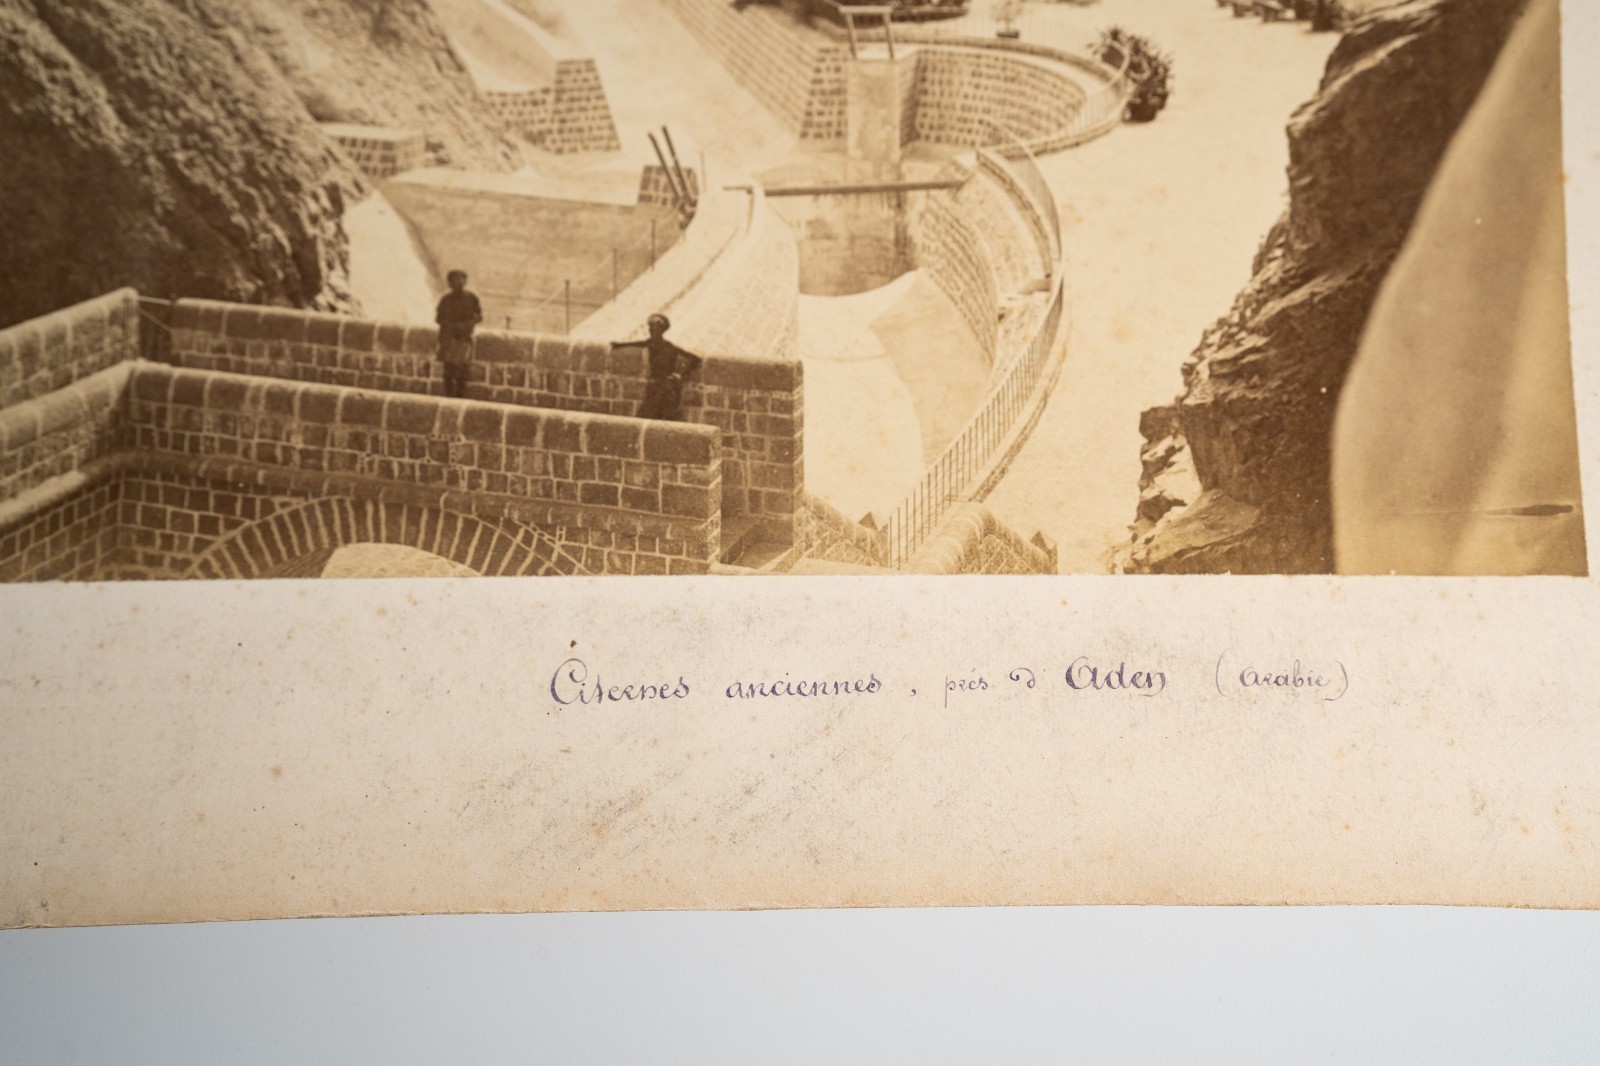 Citernes anciennes, près d'Aden (Arabie)